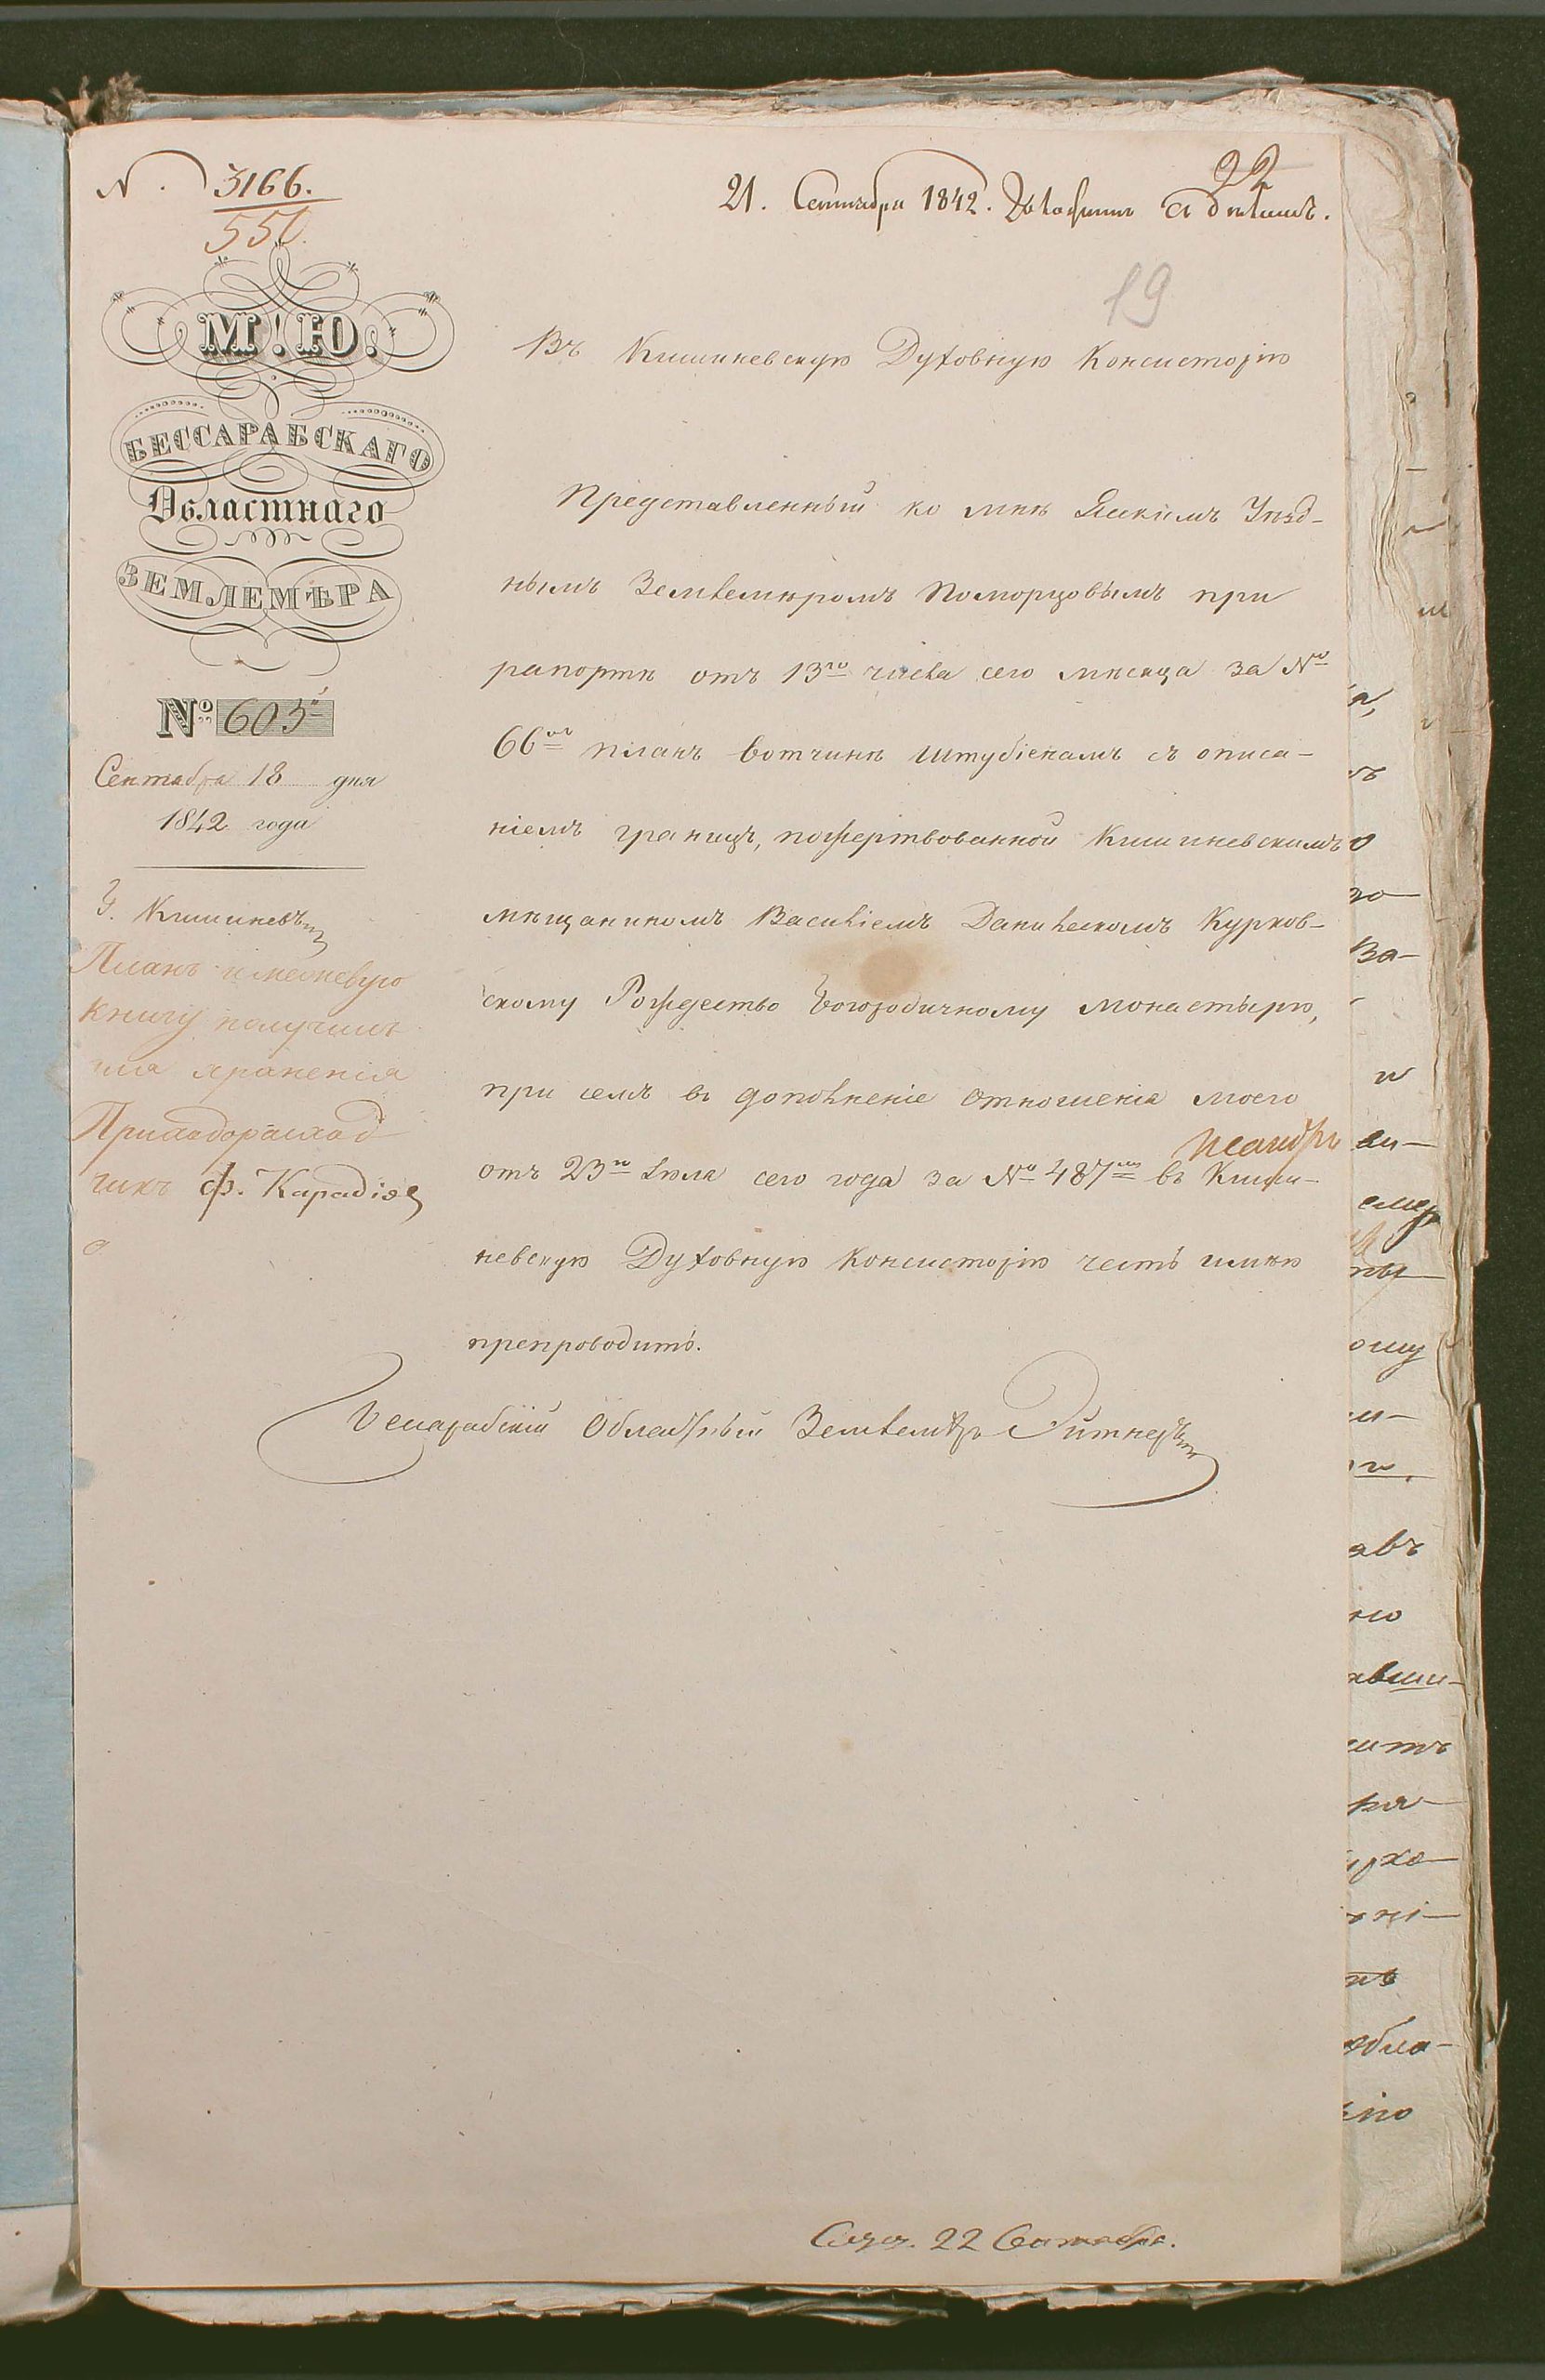 N. 3166.
550.
21. Сентября 1842. Доложить съ дѣломъ.
22
19
М. Ю.
БЕССАРАБСКАГО
Областнаго
ЗЕМЛЕМѢРА
№ 605
Сентября 18 дня
1842 года
Г. Кишиневъ
Планъ и межевую
книгу получилъ
для храненія
Приходорасход
чикъ Ф. Карадія
Въ Кишиневскую Духовную Консисторію
Представленный ко мнѣ Ясскимъ Уѣзд-
нымъ Землемѣромъ Поморцовымъ при
рапортѣ отъ 13го числа сего мѣсяца за №
66мъ планъ вотчинѣ Штубіенамъ съ описа-
ніемъ границъ, пожертвованной Кишиневскимъ
мѣщаниномъ Василіемъ Данилескомъ Курков-
скому Рождество Богородичному монастырю,
при семъ въ дополненіе отношенія моего
отъ 23го Іюля сего года за № 487мъ въ Киши-
невскую Духовную Консисторію честь имѣю
препроводить.
Бессарабскій Областный Землемѣръ Эйтнеръ
22 Сентября.